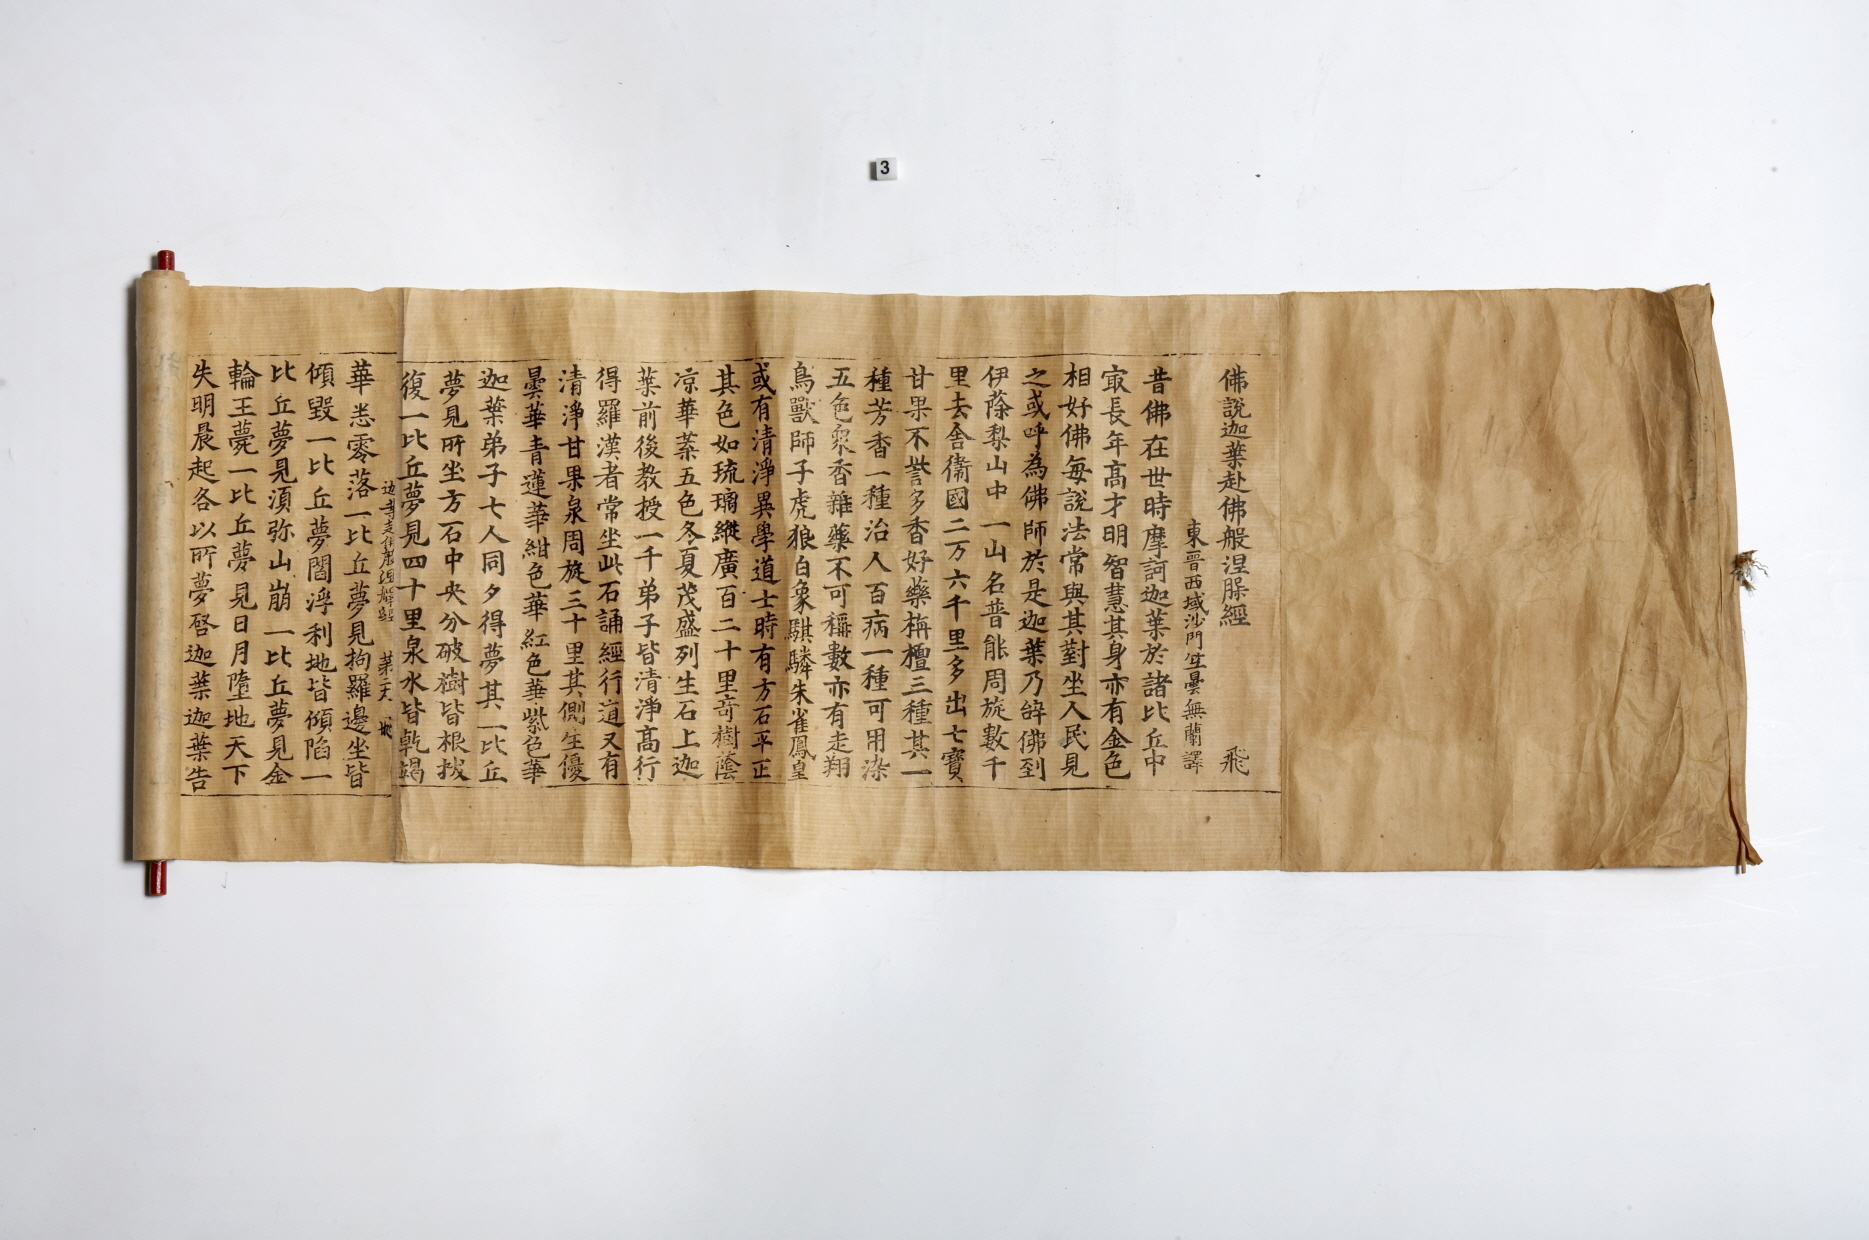 3
佛說迦葉赴佛般涅槃經 飛
東晉西域沙門竺曇無蘭譯
昔佛在世時摩訶迦葉於諸比丘中
㝡長年高才明智慧其身亦有金色
相好佛每說法常與其對坐人民見
之或呼為佛師於是迦葉乃辭佛到
伊蒢梨山中一山名普能周旋數千
里去舍衛國二万六千里多出七寶
甘果不訾多香好藥栴檀三種其一
種芳香一種治人百病一種可用染
五色衆香雜藥不可稱數亦有走翔
鳥獸師子虎狼白象騏驎朱雀鳳皇
或有清淨異學道士時有方石平正
其色如琉璃縱廣百二十里竒樹蔭
凉華蘂五色冬夏茂盛列生石上迦
葉前後教授一千弟子皆清淨高行
得羅漢者常坐此石誦經行道又有
清淨甘果泉周旋三十里其側生優
曇華青蓮華紺色華紅色華紫色華
迦葉弟子七人同夕得夢其一比丘
夢見所坐方石中央分破樹皆根拔
復一比丘夢見四十里泉水皆乾竭
華悉零落一比丘夢見拘羅邊坐皆
傾毀一比丘夢閻浮利地皆傾陷一
比丘夢見須弥山崩一比丘夢見金
輪王薨一比丘夢見日月墮地天下
失明晨起各以所夢啓迦葉迦葉告